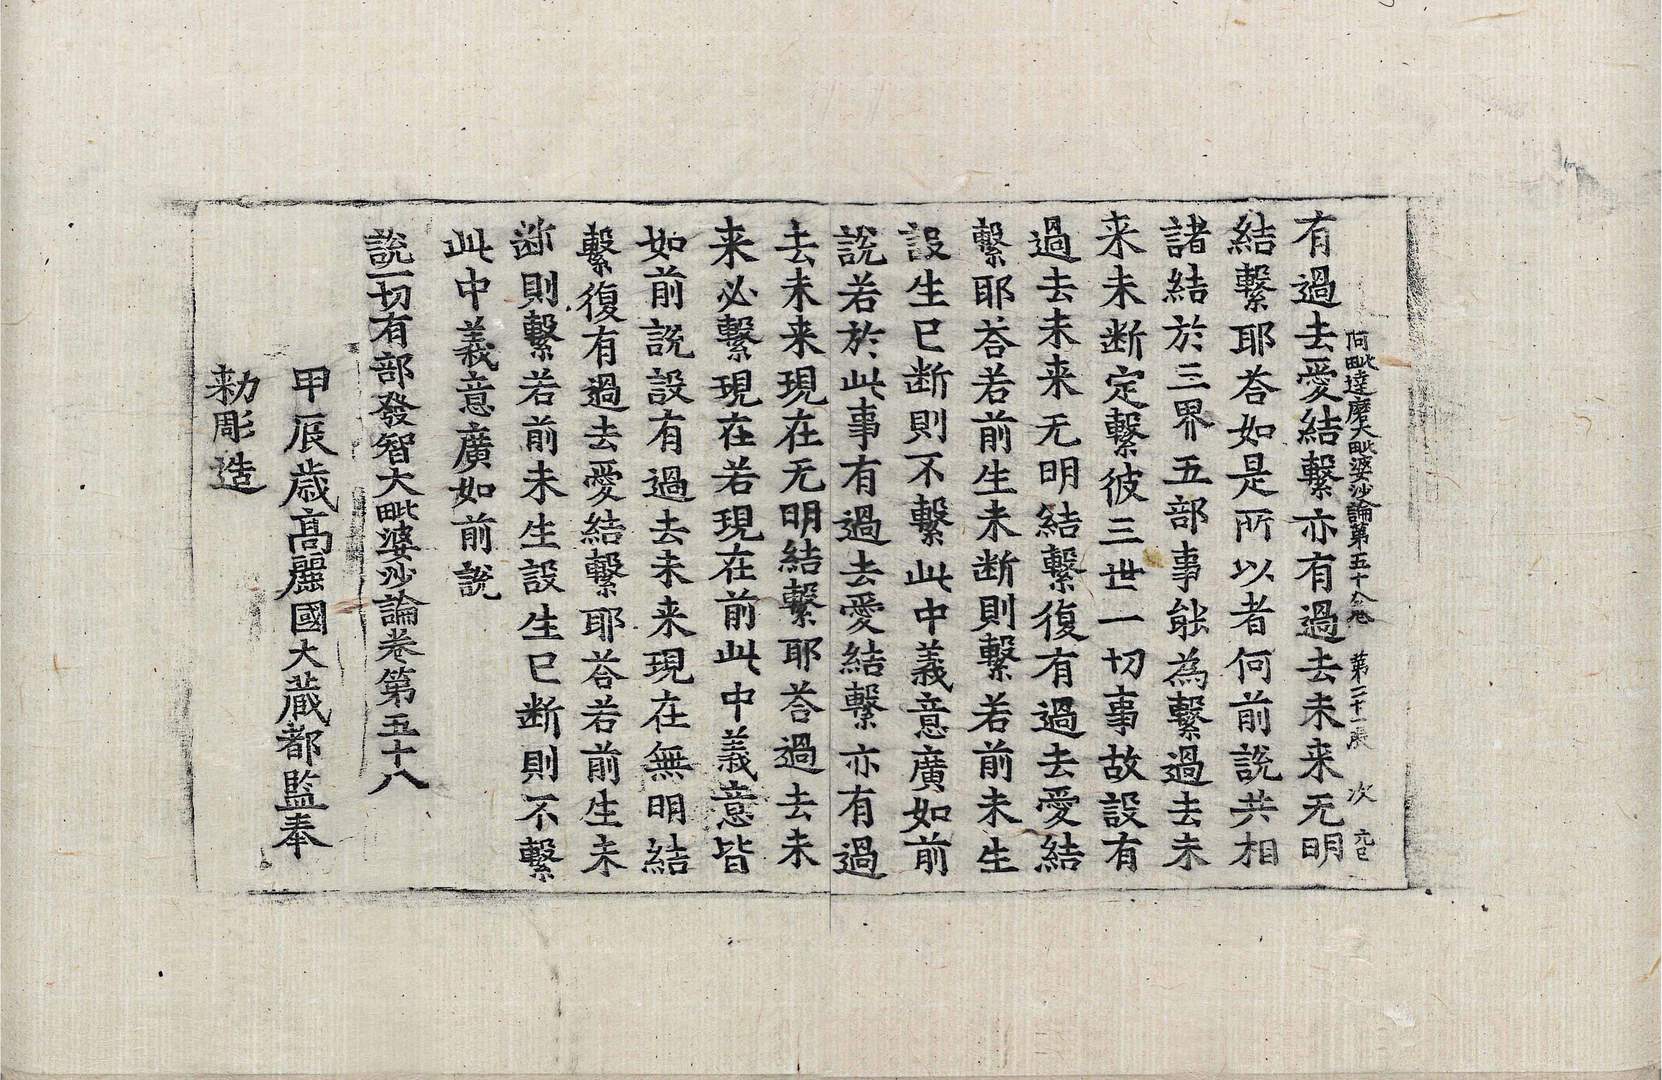 阿毗達磨大毗婆沙論第五十八卷 第二十一張 次
有過去愛結繫亦有過去未来无明
結繫耶荅如是所以者何前說共相
諸結於三界五部事能為繫過去未
来未断定繫彼三世一切事故設有
過去未来无明結繫復有過去愛結
繫耶荅若前生未断則繫若前未生
設生已断則不繫此中義意廣如前
說若於此事有過去愛結繫亦有過
去未来現在无明結繫耶荅過去未
来必繫現在若現在前此中義意皆
如前說設有過去未来現在無明結
繫復有過去愛結繫耶荅若前生未
断則繫若前未生設生已断則不繫
此中義意廣如前說
說一切有部發智大毗婆沙論卷第五十八
甲辰歲高麗國大藏都監奉
勑彫造